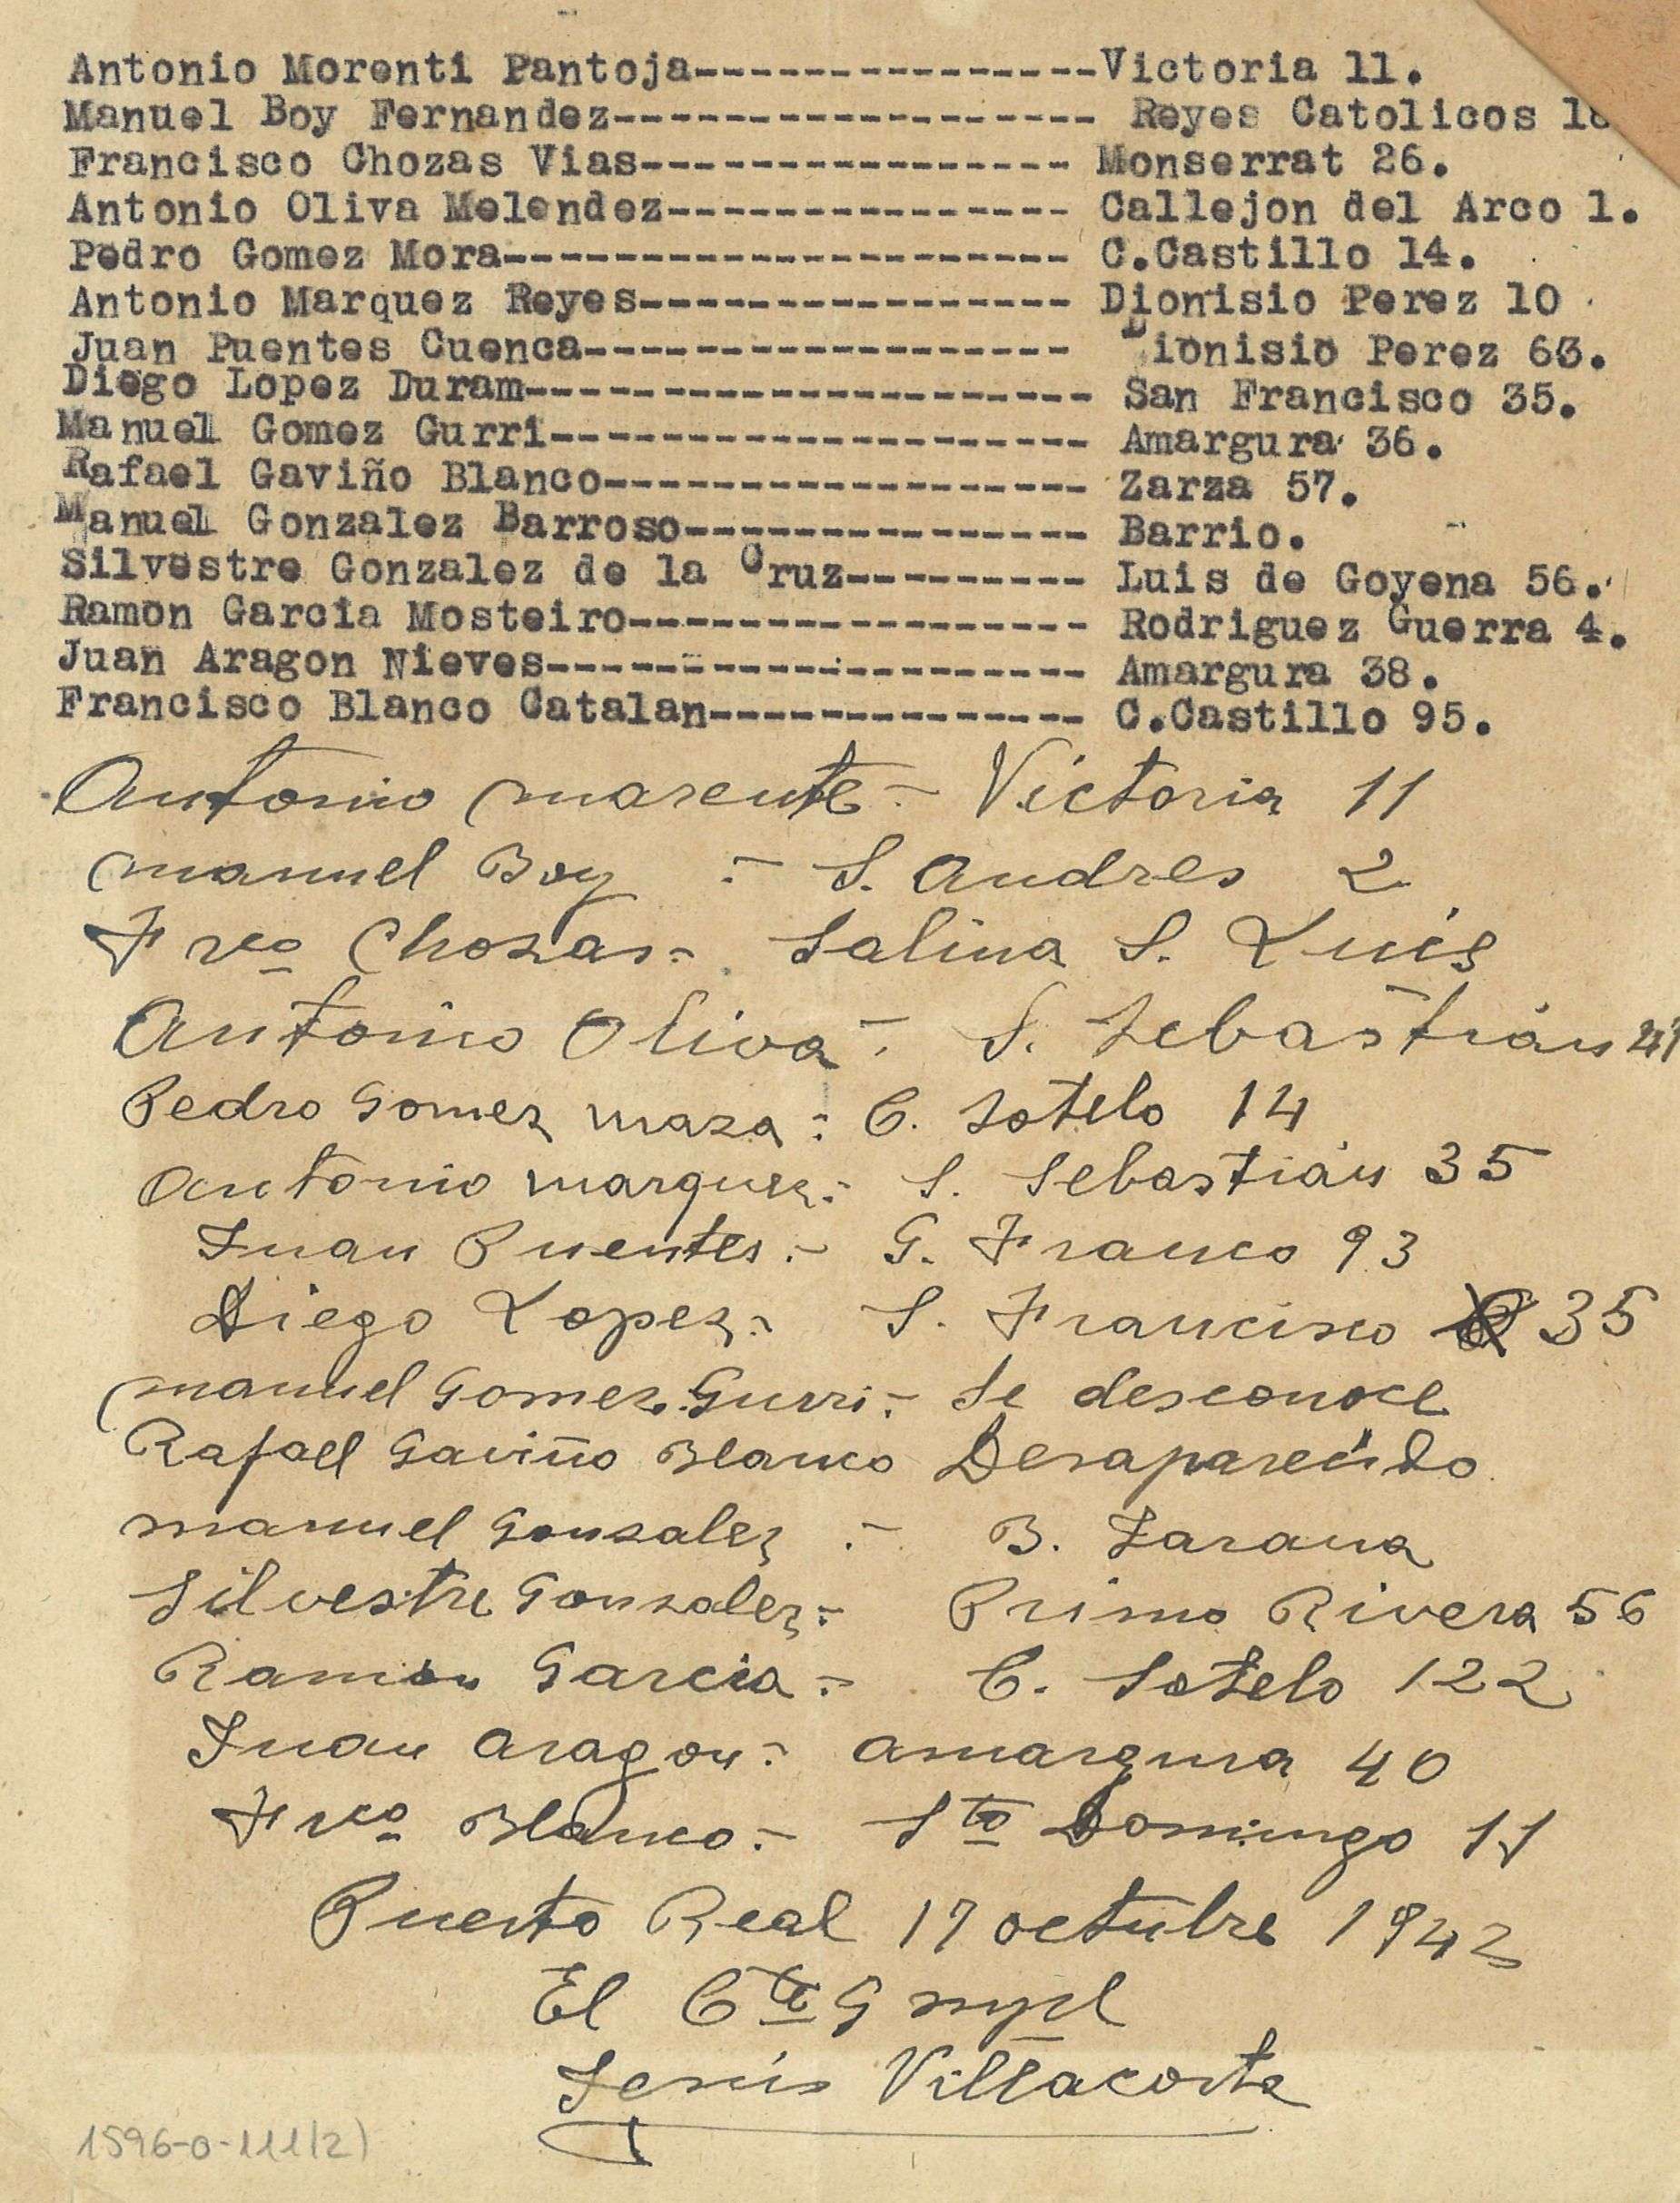 Antonio Morenti Pantoja---------------Victoria 11.
Manuel Boy Fernandez------------------ Reyes Catolicos 18
Francisco Chozas Vias---------------- Monserrat 26.
Antonio Oliva Melendez--------------- Callejon del Arco 1.
Pedro Gomez Mora--------------------- C.Castillo 14.
Antonio Marquez Reyes---------------- Dionisio Perez 10
Juan Puentes Cuenca------------------ Dionisio Perez 63.
Diego Lopez Duram--------------------- San Francisco 35.
Manuel Gomez Gurri-------------------- Amargura 36.
Rafael Gaviño Blanco------------------ Zarza 57.
Manuel Gonzalez Barroso--------------- Barrio.
Silvestre Gonzalez de la Cruz--------- Luis de Goyena 56.
Ramon Garcia Mosteiro----------------- Rodriguez Guerra 4.
Juan Aragon Nieves-------------------- Amargura 38.
Francisco Blanco Catalan-------------- C.Castillo 95.
Antonio marente.- Victoria 11
manuel Boy .- S. Andres 2
Frco Chozas.- Salina S. Luis
Antonio Oliva.- S. Sebastián 41
Pedro Gomez maza.- C. Sotelo 14
Antonio marquez.- S. Sebastián 35
Juan Puentes.- G. Franco 93
Diego Lopez.- S. Francisco 35
manuel Gomez Gurri.- Se desconoce
Rafael Gaviño Blanco Desaparecido
manuel Gonzalez .- B. Jarana
Silvestre Gonzalez.- Primo Rivera 56
Ramon Garcia.- C. Sotelo 122
Juan Aragon.- amargura 40
Frco Blanco.- Sto Domingo 11
Puerto Real 17 octubre 1942
El Cte G mpl
Jesús Villacorta
1596-0-111(2)